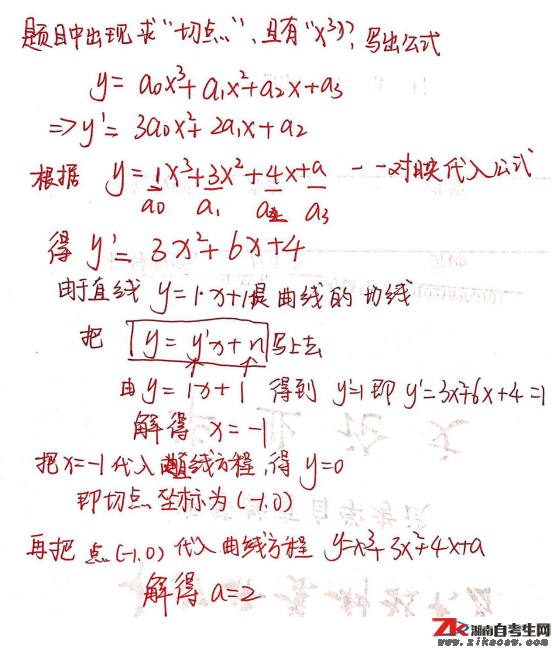 题目中出现求“切点”,且有“x³”?,写出公式
y = a0x³+a1x²+a2x+a3
⇒y'= 3a0x²+2a1x+a2
根据 y=1x³+3x²+4x+a 一一对映代入公式
a0 a1 a2 a3
得 y'= 3x²+6x+4
由于直线 y=1·x+1是曲线的切线
把 y=y'x+n 写上去
由y=1x+1 得到 y'=1即 y'=3x²+6x+4=1
解得 x=-1
把x=-1代入 线方程,得 y=0
即切点坐标为(-1,0)
再把点(-1,0)代入曲线方程 y=x³+3x²+4x+a
解得a=2
湖南自考生网
www.zikaosw.com